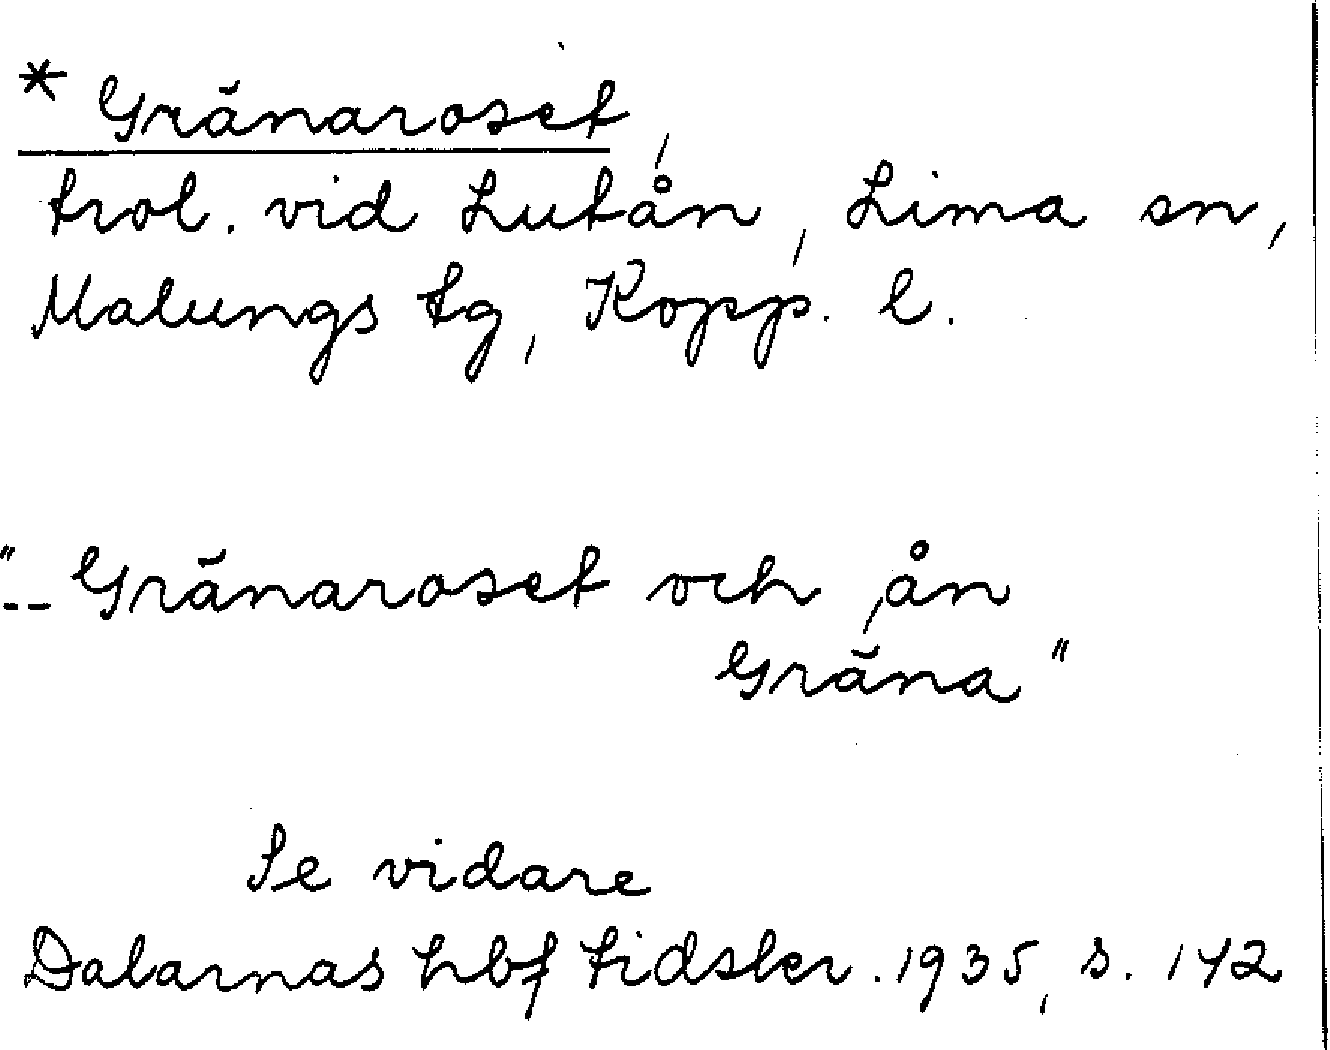 * Gränaroset,
trol. vid Lutån, Lima sn,
Malungs tg, Kopp. l.
"-- Gränaroset och ån
Gräna"
Se vidare
Dalarnas hbf tidskr. 1935, s. 142